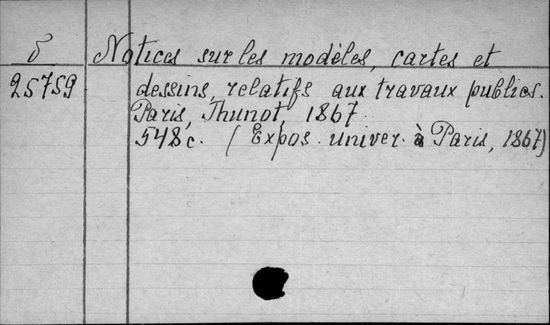 δ Notices sur les modèles, cartes et
25759 dessins, relatifs aux travaux publics.
Paris, Thunot, 1867.
548 c. (Expos. univer. à Paris, 1867)